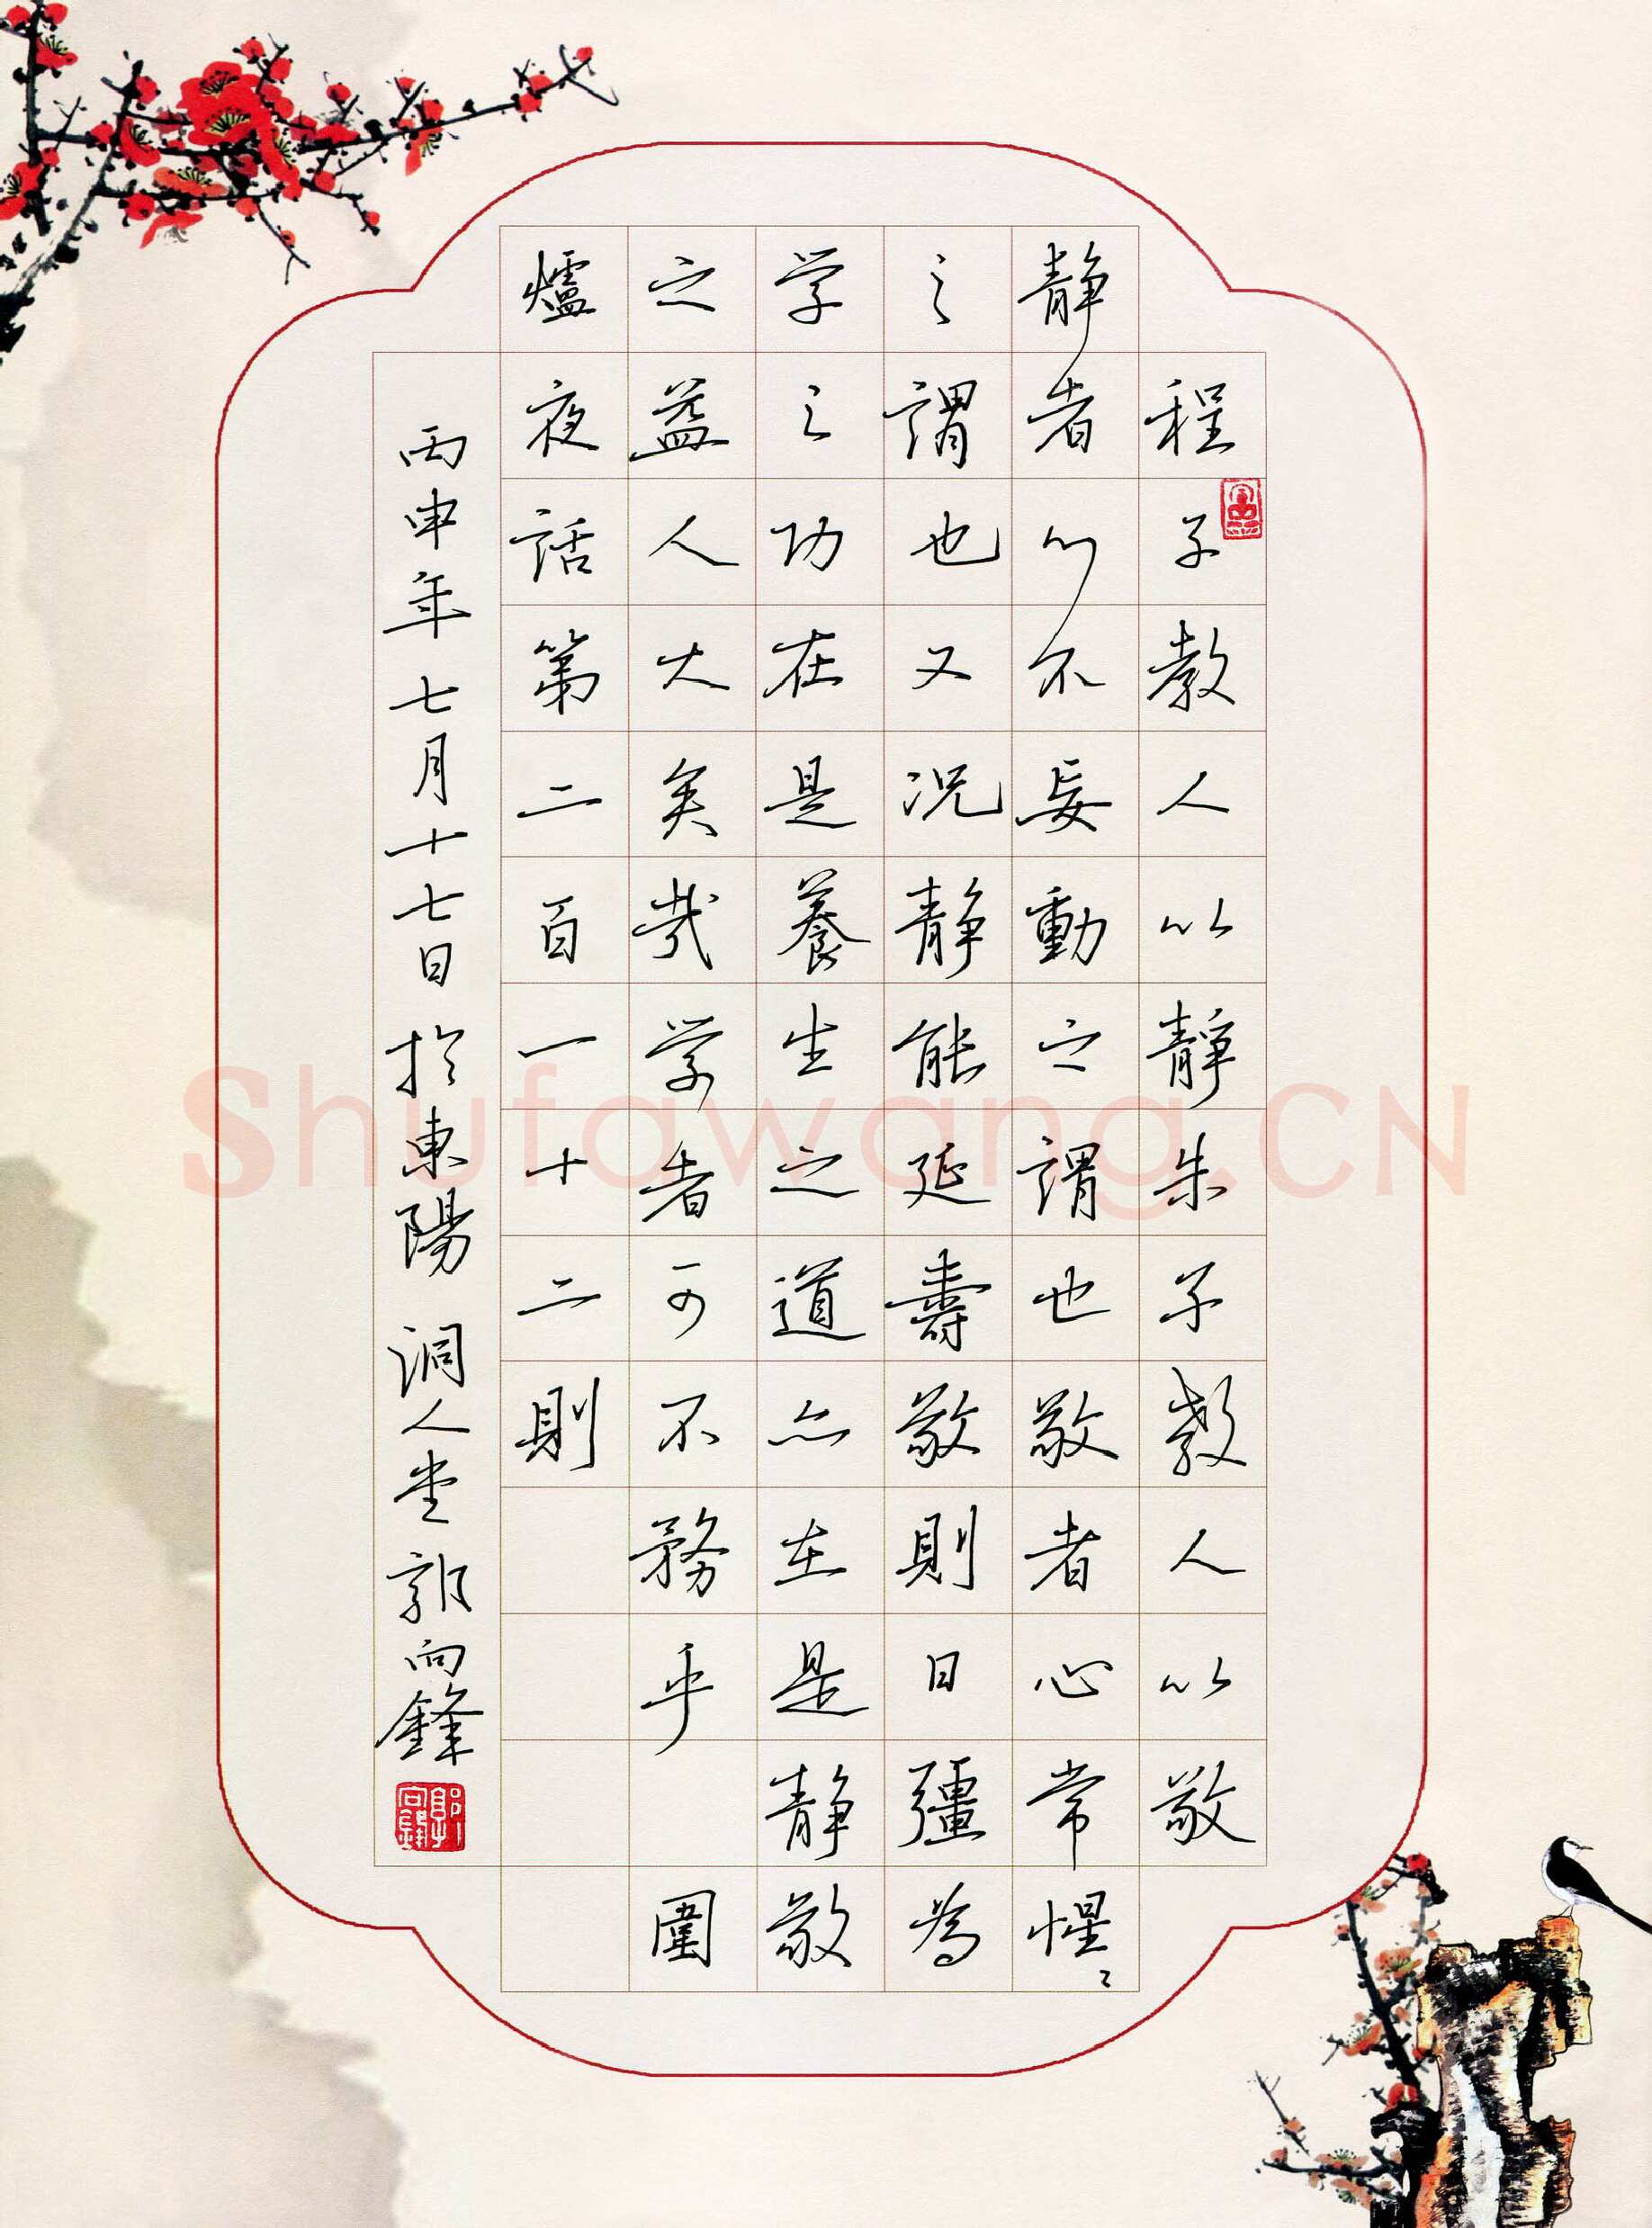 程子教人以靜朱子教人以敬
静者心不妄動之謂也敬者心常惺〻
之謂也又况静能延壽敬則日彊為
学之功在是養生之道亦在是静敬
之益人大矣哉学者可不務乎圍
爐夜話第二百一十二則
丙申年七月十七日於東陽洞人堂郭向鋒
郭向鋒
Shufawang.CN